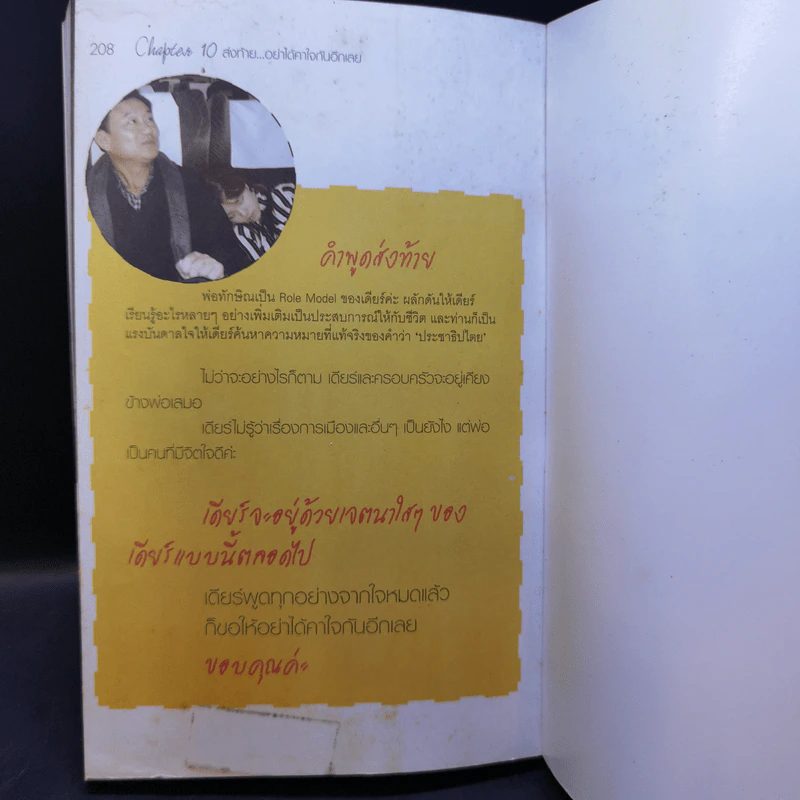 208 Chapter 10 ส่งท้าย...อย่าได้คาใจกันอีกเลย
คำพูดส่งท้าย
พ่อทักษิณเป็น Role Model ของเดียร์ค่ะ ผลักดันให้เดียร์
เรียนรู้อะไรหลายๆ อย่างเพิ่มเติมเป็นประสบการณ์ให้กับชีวิต และท่านก็เป็น
แรงบันดาลใจให้เดียร์ค้นหาความหมายที่แท้จริงของคำว่า 'ประชาธิปไตย'
ไม่ว่าจะอย่างไรก็ตาม เดียร์และครอบครัวจะอยู่เคียง
ข้างพ่อเสมอ
เดียร์ไม่รู้ว่าเรื่องการเมืองและอื่นๆ เป็นยังไง แต่พ่อ
เป็นคนที่มีจิตใจดีค่ะ
เดียร์จะอยู่ด้วยเจตนาใสๆ ของ
เดียร์แบบนี้ตลอดไป
เดียร์พูดทุกอย่างจากใจหมดแล้ว
ก็ขอให้อย่าได้คาใจกันอีกเลย
ขอบคุณค่ะ